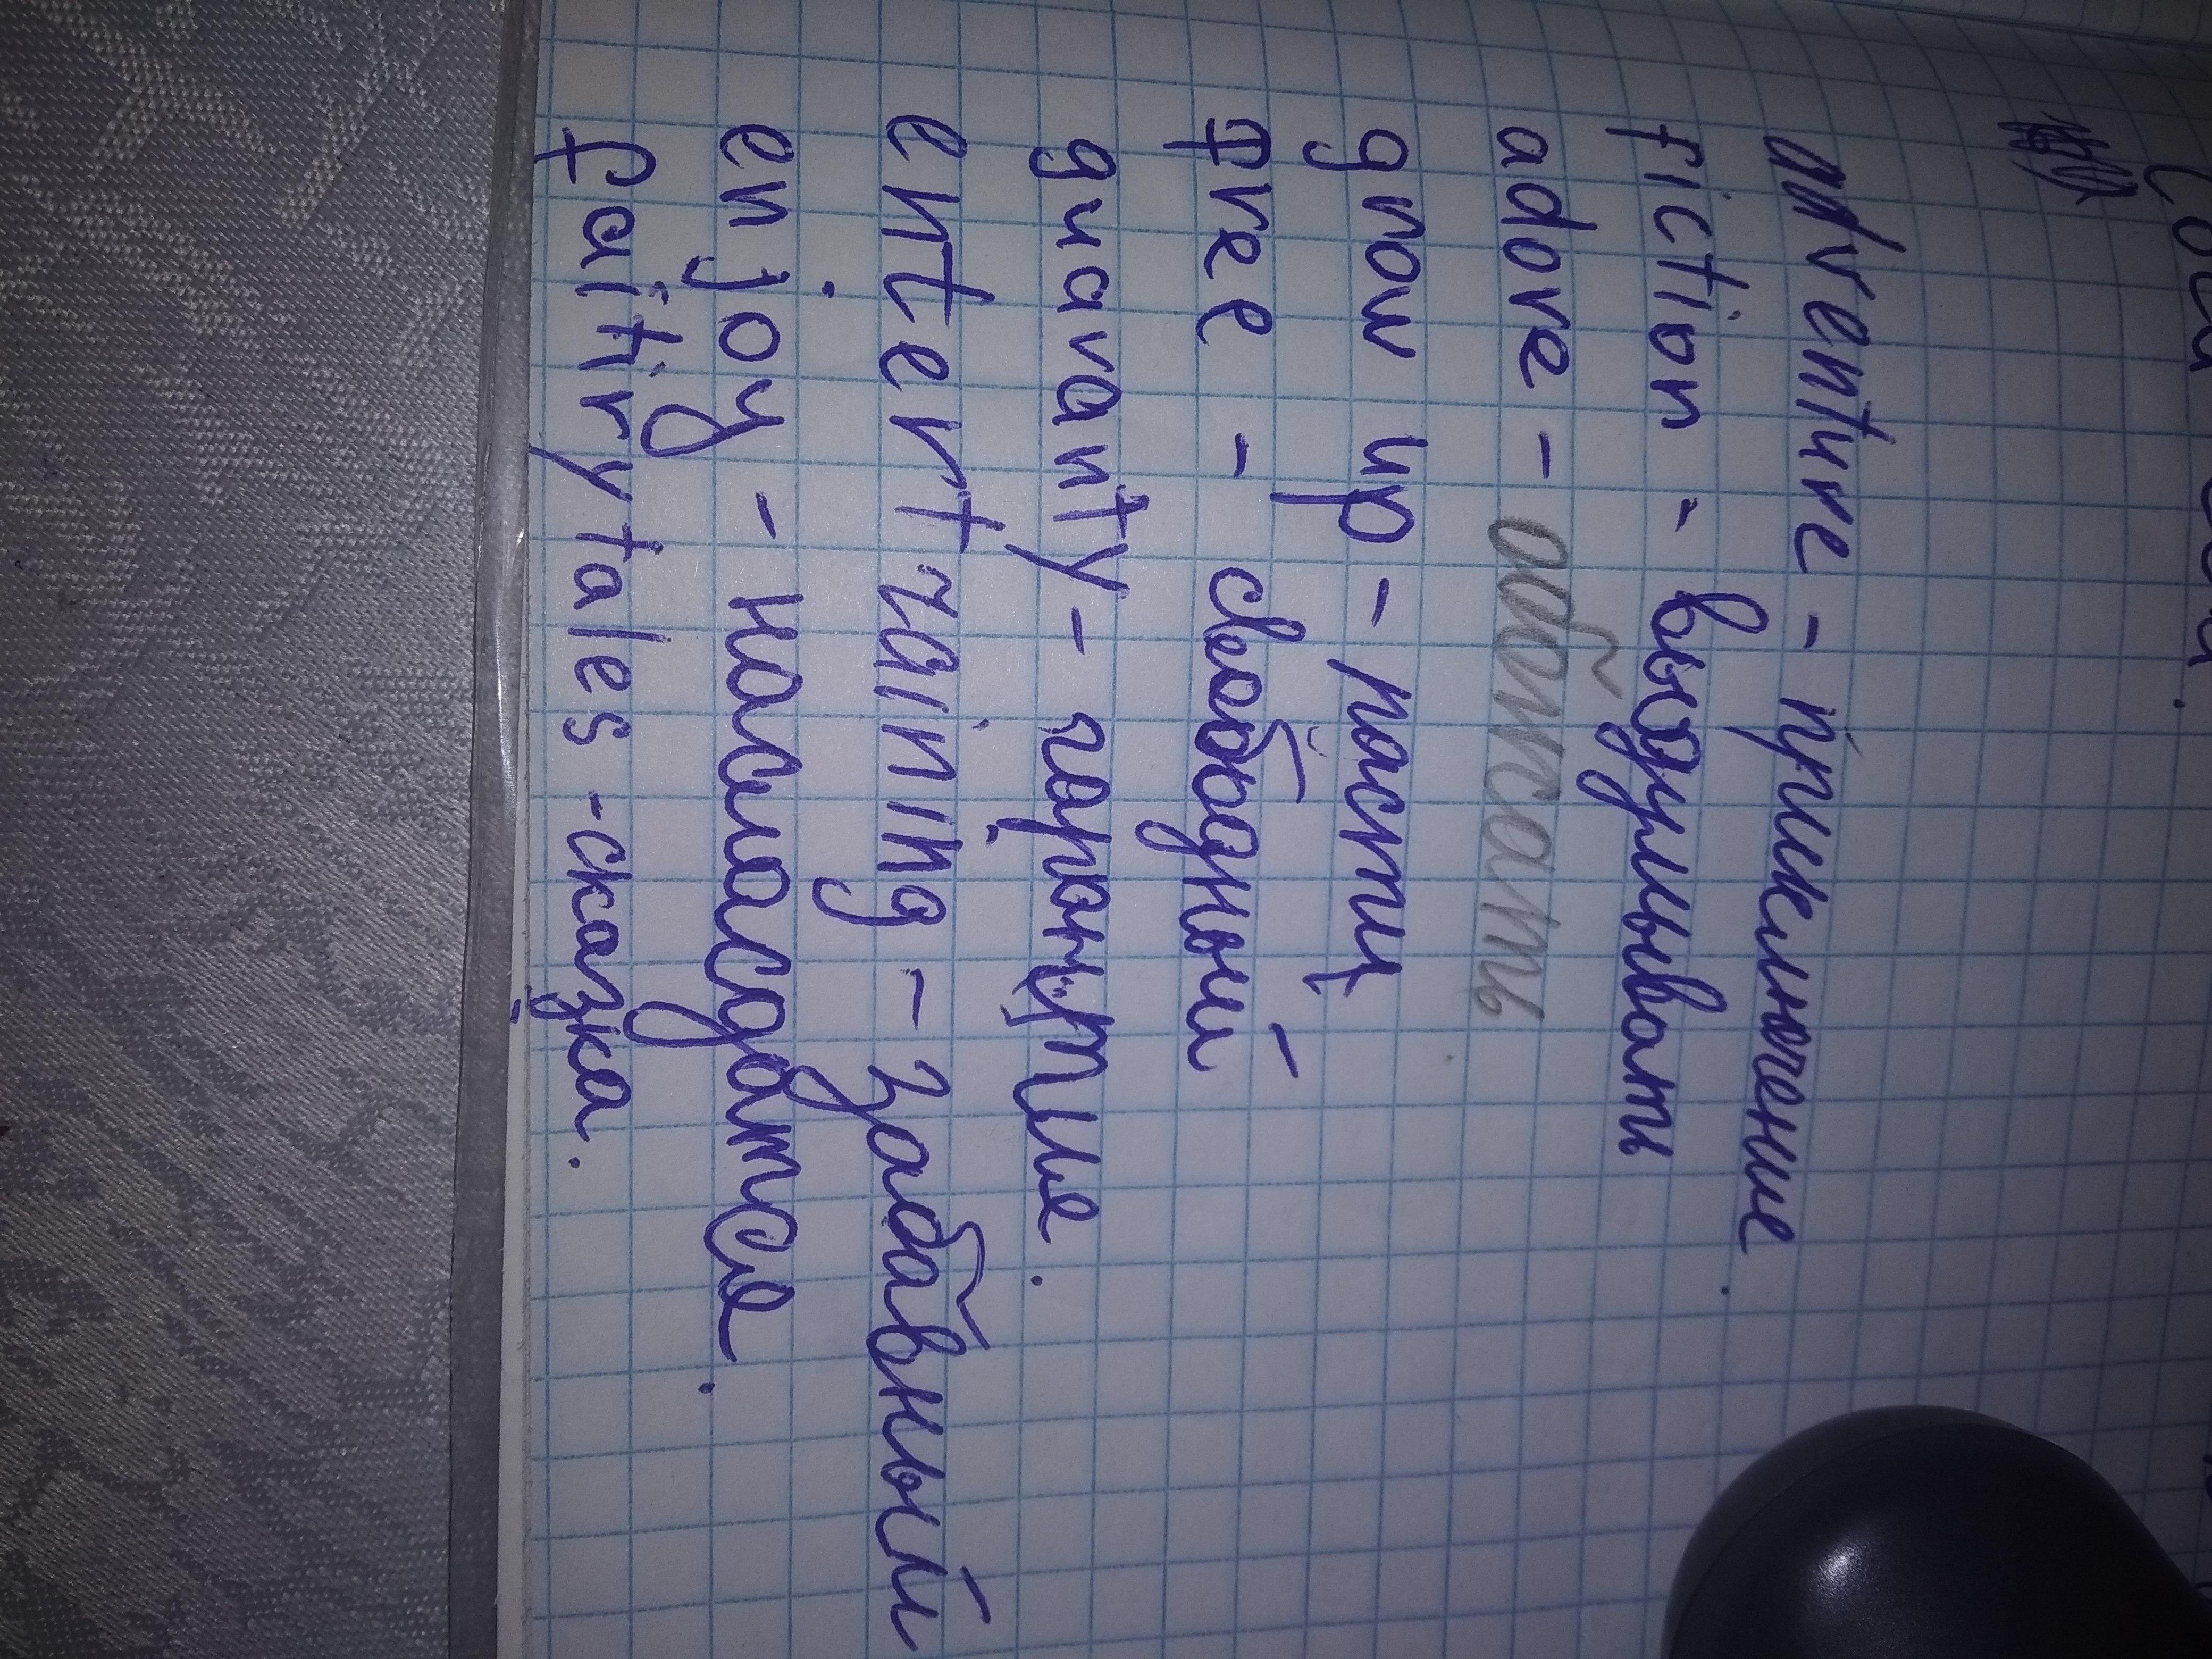 adventure - приключение.
fiction - выодумывать
adore - обожать
grow up - расти
free - свободный
guaranty - гарантия.
entertaining - забавный
enjoy - насласдатся.
faitirytales - сказка.